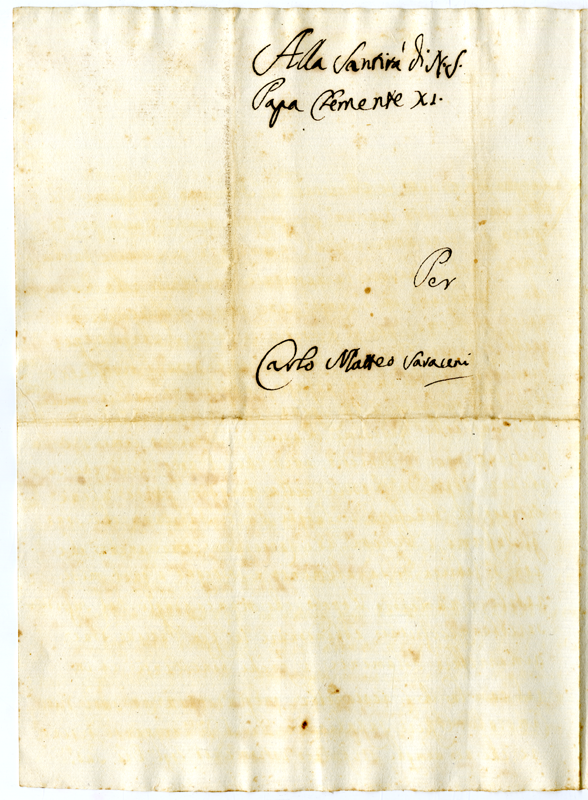 Alla Santità di N.S.
Papa Clemente XI.
Per
Carlo Matteo Saraceni